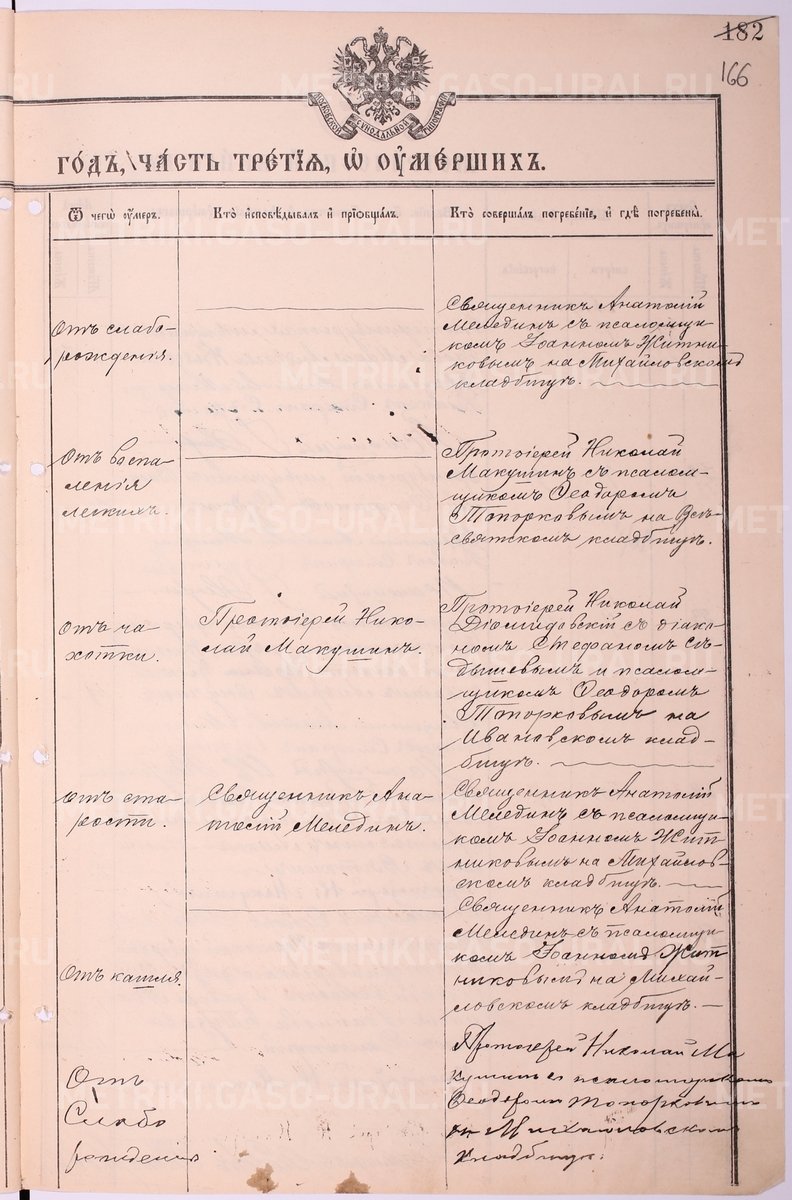 182
166
МОСКОВСКОЙ СУНОДАЛЬНОЙ ТИПОГРАФІИ
ГО́ДЪ, ЧА́СТЬ ТРЕ́ТІѦ, Ѡ҆ ОУ҆МЕ́РШИХЪ.
Ѿ чегѡ̀ оу҆́меръ.
Кто̀ и҆сповѣ́дывалъ и҆ прїѻбща́лъ.
Кто̀ соверша́лъ погребе́нїе, и҆ гдѣ̀ погребены̀.
Отъ слабо-
рожденія.
Священникъ Анатолій
Мелединъ съ псаломщи-
комъ Іоанномъ Житни-
ковымъ на Михайловскомъ
кладбищѣ.
Отъ воспа-
ленія
легкихъ.
Протоіерей Николай
Макушинъ съ псалом-
щикомъ Ѳеодоромъ
Топорковымъ на Все-
святскомъ кладбищѣ.
Отъ ча-
хотки.
Протоіерей Нико-
лай Макушинъ.
Протоіерей Николай
Діомидовскій съ діако-
номъ Стефаномъ
и псалом-
щикомъ Ѳеодоромъ
Топорковымъ на
Ивановскомъ клад-
бищѣ.
Отъ ста-
рости.
Священникъ Ана-
толій Мелединъ.
Священникъ Анатолій
Мелединъ съ псаломщи-
комъ Іоанномъ Жит-
никовымъ на Михайлов-
скомъ кладбищѣ.
Отъ кашля.
Священникъ Анатолій
Мелединъ съ псаломщи-
комъ Іоанномъ Жит-
никовымъ на Михай-
ловскомъ кладбищѣ.
Отъ
Слабо
рожденія
Протоіерей Николай Ма
кушинъ съ псаломщикомъ
Ѳеодоромъ Топорковымъ
на Михайловскомъ
кладбищѣ.
METRIKI.GASO-URAL.RU